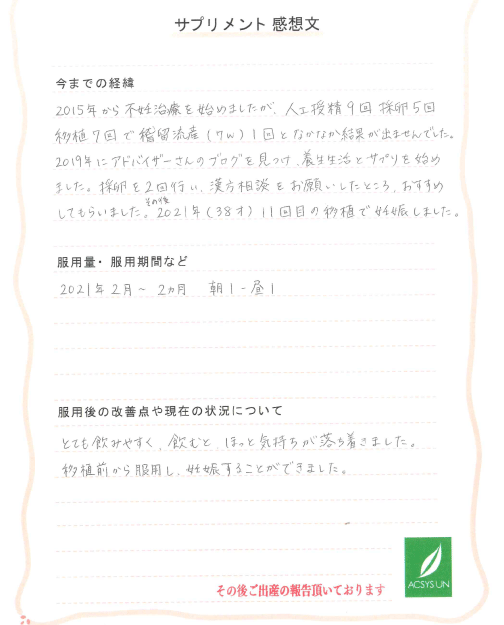 サプリメント 感想文
今までの経緯
2015年から不妊治療を始めましたが、人工授精9回 採卵5回
移植7回で稽留流産(7w)1回となかなか結果が出ませんでした。
2019年にアドバイザーさんのブログを見つけ、養生生活とサプリを始め
ました。採卵を2回行い、漢方相談をお願いしたところ、おすすめ
してもらいました。その後2021年(38才)11回目の移植で妊娠しました。
服用量・服用期間など
2021年2月〜 2ヵ月 朝1-昼1
服用後の改善点や現在の状況について
とても飲みやすく、飲むと、ほっと気持ちが落ち着きました。
移植前から服用し、妊娠することができました。
その後ご出産の報告頂いております
ACSYSUN